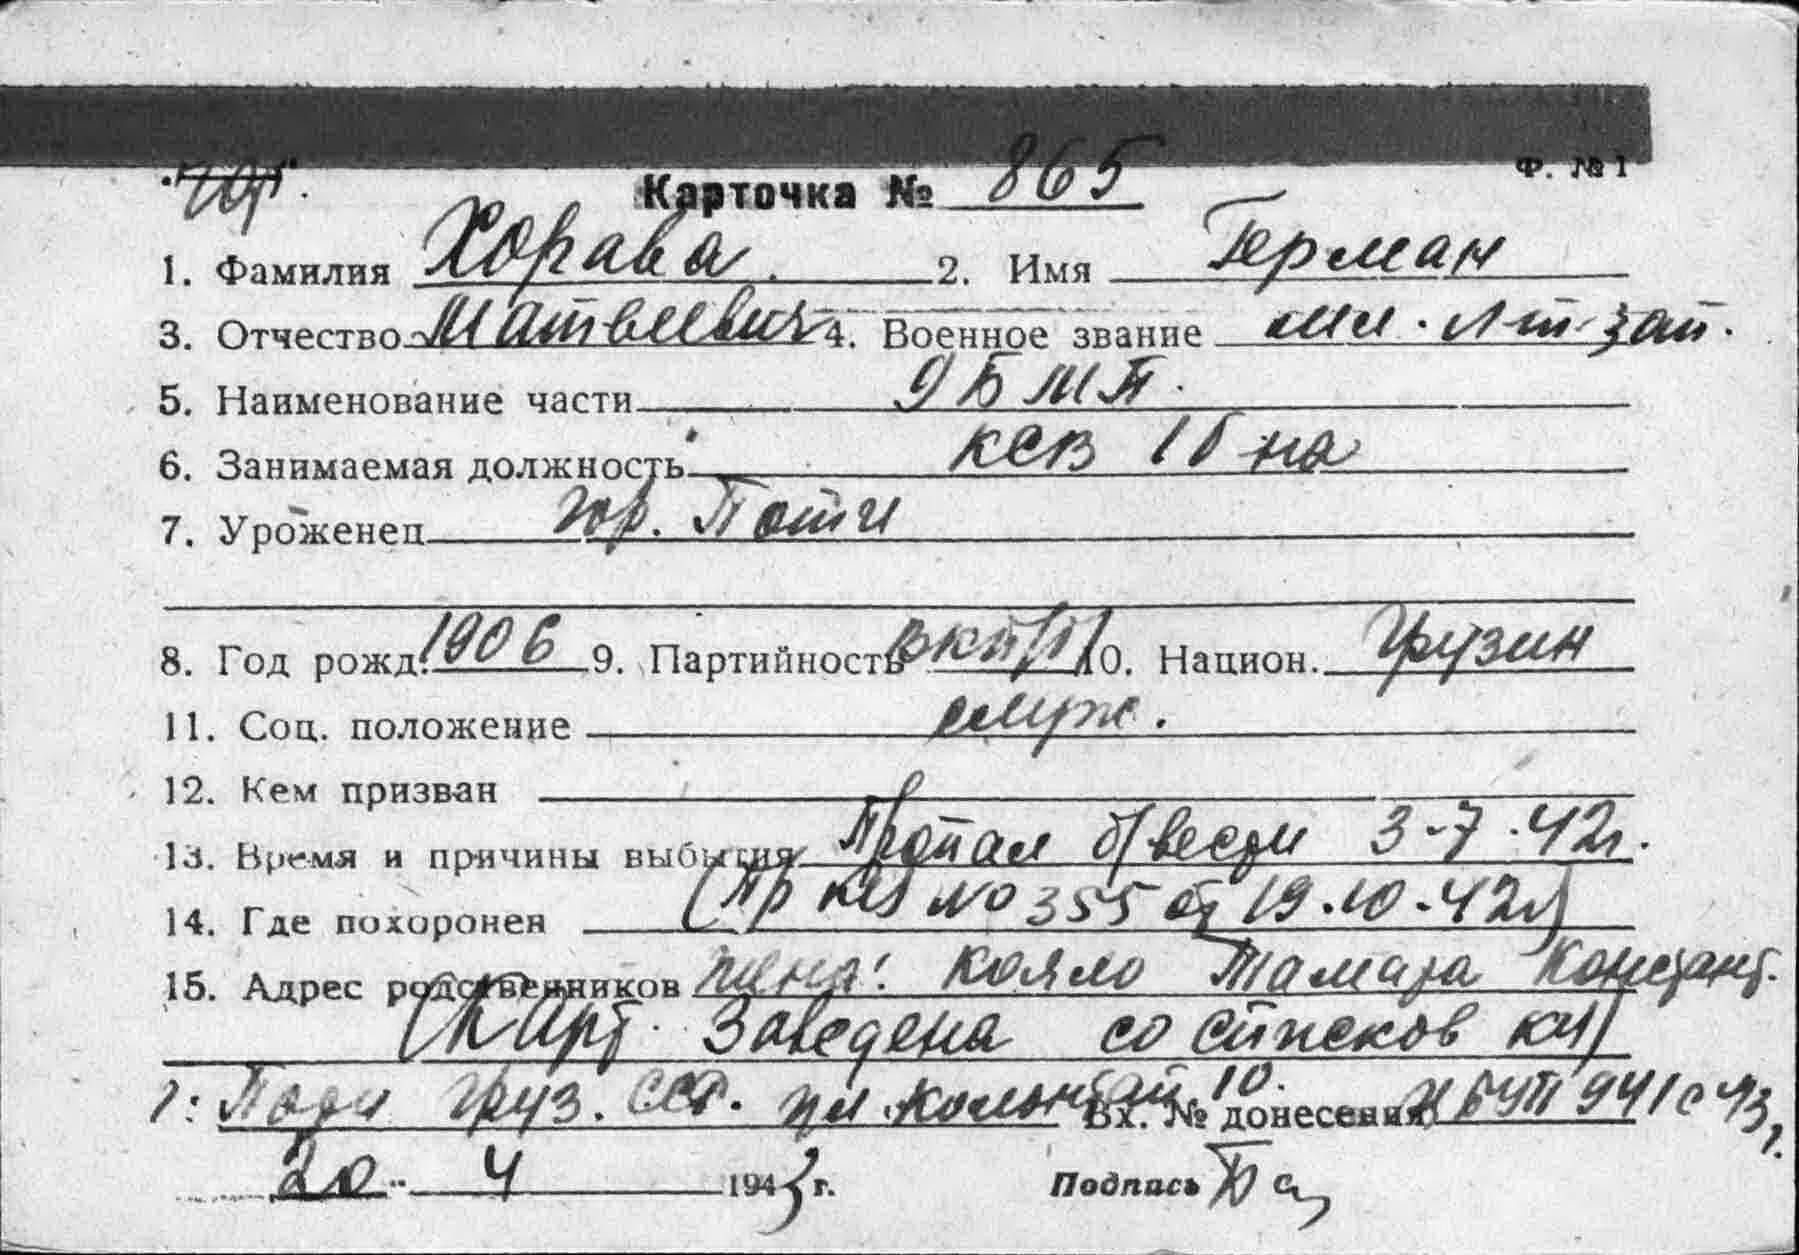 Ф. № 1
Карточка № 865
1. Фамилия Хорава. 2. Имя Герман
3. Отчество Матвеевич 4. Военное звание мл. л-т зап.
5. Наименование части 9 Б М П.
6. Занимаемая должность КСВ 1 б-на
7. Уроженец гор. Поти
8. Год рожд. 1906 9. Партийность ВКП/б/ 10. Национ. Грузин
11. Соц. положение служ.
12. Кем призван
13. Время и причины выбытия Пропал б/вести 3-7-42г.
14. Где похоронен (Пр №355 от 19.10-42г)
15. Адрес родственников жена: Тамара Констант.
(Карт. Заведена со списков)
г: Поти Груз. ССР. 10. Вх. № донесения 941с 43г.
20 " 4 1943 г. Подпись